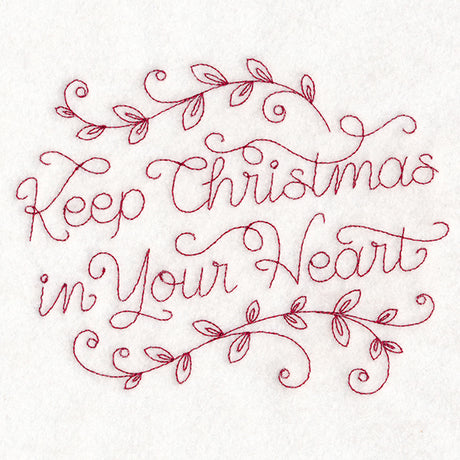 Keep Christmas
in Your Heart